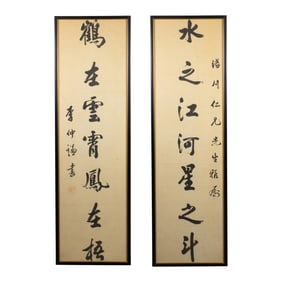 水之江河星之斗
仁兄先生雅
鶴在雲霄鳳在梧
李仲謙書